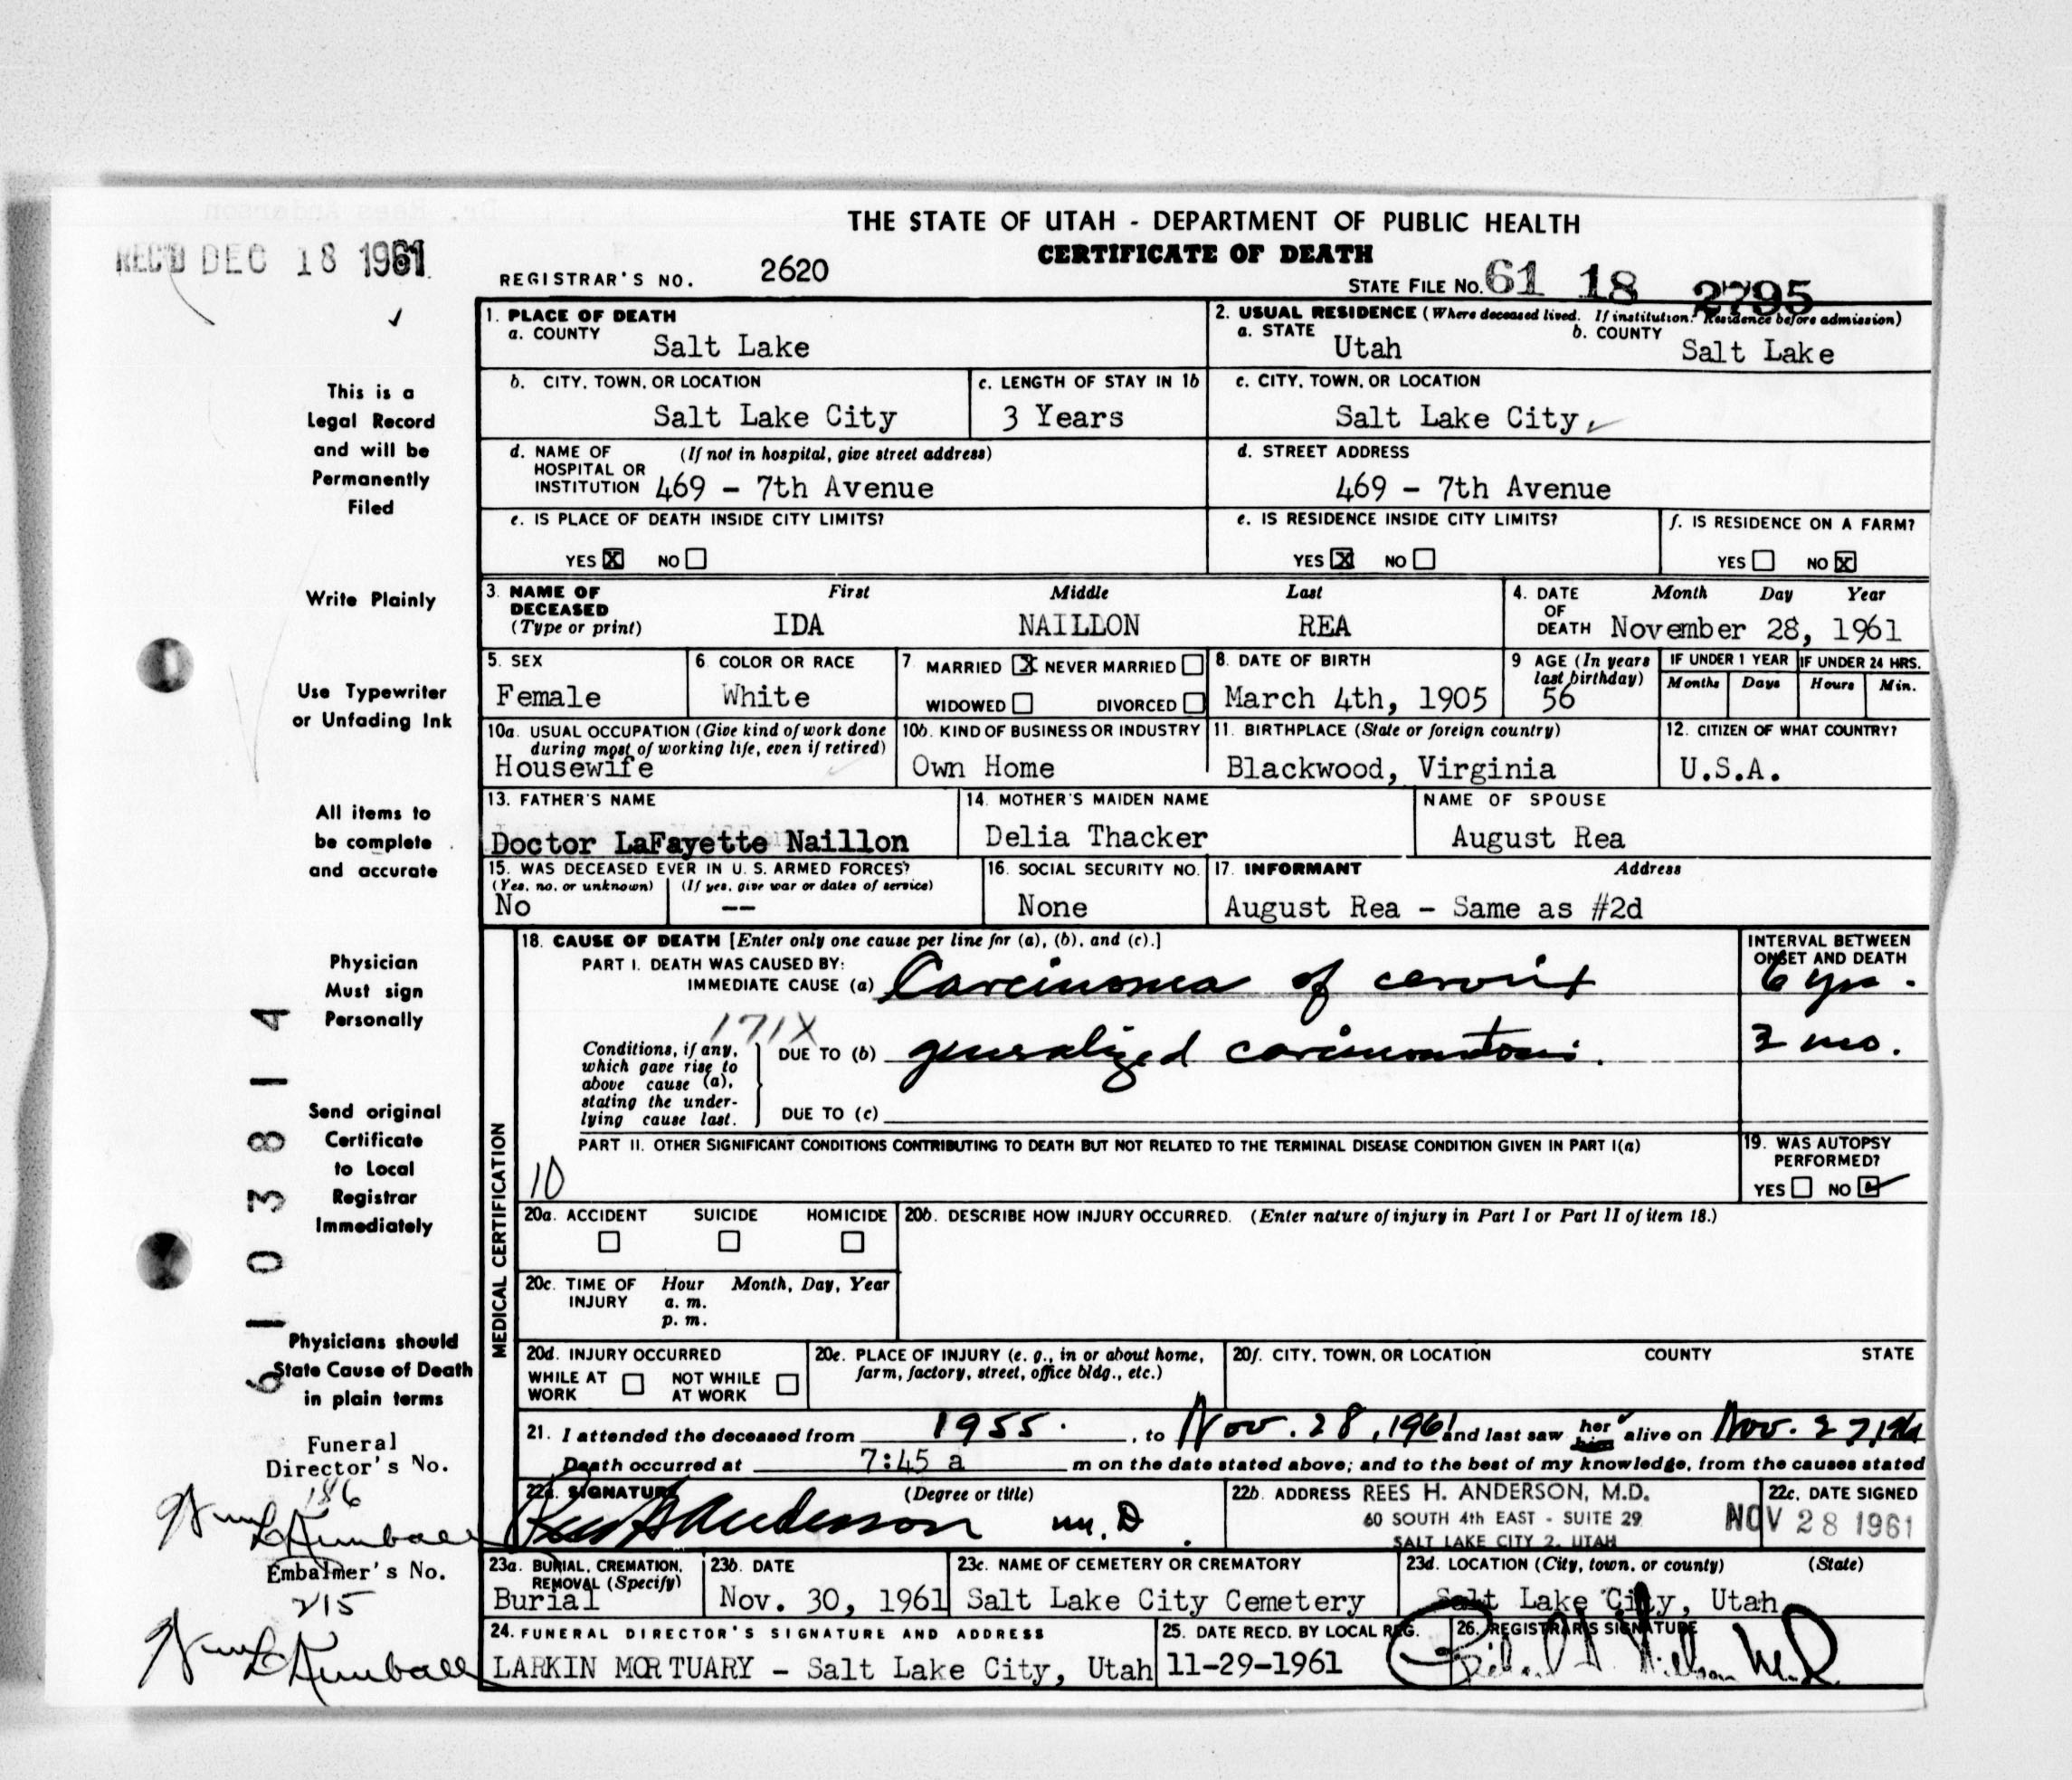 THE STATE OF UTAH - DEPARTMENT OF PUBLIC HEALTH
CERTIFICATE OF DEATH
REC'D DEC 18 1961
REGISTRAR'S NO. 2620
STATE FILE NO. 61 18 2795
1. PLACE OF DEATH
a. COUNTY Salt Lake
2. USUAL RESIDENCE (Where deceased lived. If institution: Residence before admission)
a. STATE Utah b. COUNTY Salt Lake
b. CITY, TOWN, OR LOCATION Salt Lake City
c. LENGTH OF STAY IN 1b 3 Years
c. CITY, TOWN, OR LOCATION Salt Lake City
d. NAME OF HOSPITAL OR INSTITUTION (If not in hospital, give street address) 469 - 7th Avenue
d. STREET ADDRESS 469 - 7th Avenue
e. IS PLACE OF DEATH INSIDE CITY LIMITS?
YES X NO
e. IS RESIDENCE INSIDE CITY LIMITS?
YES X NO
f. IS RESIDENCE ON A FARM?
YES NO X
3. NAME OF DECEASED (Type or print) First Middle Last
IDA NAILLON REA
4. DATE OF DEATH Month Day Year
November 28, 1961
5. SEX Female
6. COLOR OR RACE White
7 MARRIED X NEVER MARRIED
WIDOWED DIVORCED
8. DATE OF BIRTH March 4th, 1905
9 AGE (In years last birthday) 56
IF UNDER 1 YEAR Months Days
IF UNDER 24 HRS. Hours Min.
10a. USUAL OCCUPATION (Give kind of work done during most of working life, even if retired) Housewife
10b. KIND OF BUSINESS OR INDUSTRY Own Home
11. BIRTHPLACE (State or foreign country) Blackwood, Virginia
12. CITIZEN OF WHAT COUNTRY? U.S.A.
13. FATHER'S NAME Doctor LaFayette Naillon
14. MOTHER'S MAIDEN NAME Delia Thacker
NAME OF SPOUSE August Rea
15. WAS DECEASED EVER IN U. S. ARMED FORCES?
(Yes, no, or unknown) (If yes, give war or dates of service)
No --
16. SOCIAL SECURITY NO. None
17. INFORMANT Address
August Rea - Same as #2d
MEDICAL CERTIFICATION
18. CAUSE OF DEATH [Enter only one cause per line for (a), (b), and (c).]
INTERVAL BETWEEN ONSET AND DEATH
PART I. DEATH WAS CAUSED BY:
IMMEDIATE CAUSE (a) Carcinoma of cervix 6 yrs.
171X
Conditions, if any, which gave rise to above cause (a), stating the underlying cause last.
DUE TO (b) generalized carcinomatosis. 3 mo.
DUE TO (c)
PART II. OTHER SIGNIFICANT CONDITIONS CONTRIBUTING TO DEATH BUT NOT RELATED TO THE TERMINAL DISEASE CONDITION GIVEN IN PART I(a)
10
19. WAS AUTOPSY PERFORMED?
YES NO
20a. ACCIDENT SUICIDE HOMICIDE
20b. DESCRIBE HOW INJURY OCCURRED. (Enter nature of injury in Part I or Part II of item 18.)
20c. TIME OF INJURY Hour Month, Day, Year
a. m.
p. m.
20d. INJURY OCCURRED
WHILE AT WORK NOT WHILE AT WORK
20e. PLACE OF INJURY (e. g., in or about home, farm, factory, street, office bldg., etc.)
20f. CITY, TOWN, OR LOCATION COUNTY STATE
21. I attended the deceased from 1955. , to Nov. 28, 1961 and last saw her him alive on Nov. 27, 1961
Death occurred at 7:45 a m on the date stated above; and to the best of my knowledge, from the causes stated
22a. SIGNATURE (Degree or title)
Rees H Anderson M.D.
22b. ADDRESS REES H. ANDERSON, M.D.
60 SOUTH 4th EAST - SUITE 29
SALT LAKE CITY 2, UTAH
22c. DATE SIGNED NOV 28 1961
23a. BURIAL, CREMATION, REMOVAL (Specify) Burial
23b. DATE Nov. 30, 1961
23c. NAME OF CEMETERY OR CREMATORY Salt Lake City Cemetery
23d. LOCATION (City, town, or county) (State)
Salt Lake City, Utah
24. FUNERAL DIRECTOR'S SIGNATURE AND ADDRESS
LARKIN MORTUARY - Salt Lake City, Utah
25. DATE RECD. BY LOCAL REG. 11-29-1961
26. REGISTRAR'S SIGNATURE
This is a
Legal Record
and will be
Permanently
Filed
Write Plainly
Use Typewriter
or Unfading Ink
All items to
be complete
and accurate
Physician
Must sign
Personally
Send original
Certificate
to Local
Registrar
Immediately
Physicians should
State Cause of Death
in plain terms
Funeral
Director's No.
186
Wm L Kimball
Embalmer's No.
215
Wm L Kimball
6103814